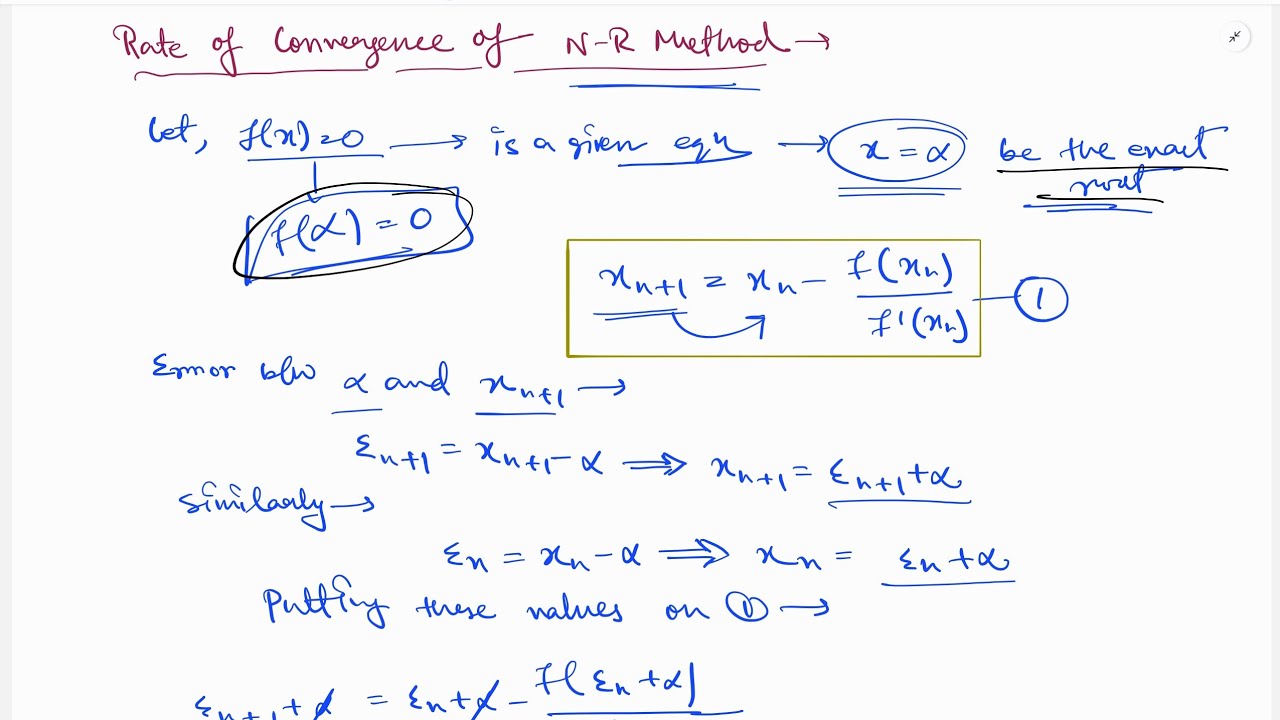 Rate of Convergence of N-R Method →
Let, f(x)=0 → is a given eqn → x = α be the exact
root
f(α) = 0
xₙ₊₁ = xₙ - f(xₙ)/f'(xₙ) — ①
Error b/w α and xₙ₊₁ →
εₙ₊₁ = xₙ₊₁ - α ⟹ xₙ₊₁ = εₙ₊₁ + α
Similarly →
εₙ = xₙ - α ⟹ xₙ = εₙ + α
Putting these values on ① →
εₙ₊₁ + α = εₙ + α - f(εₙ + α)